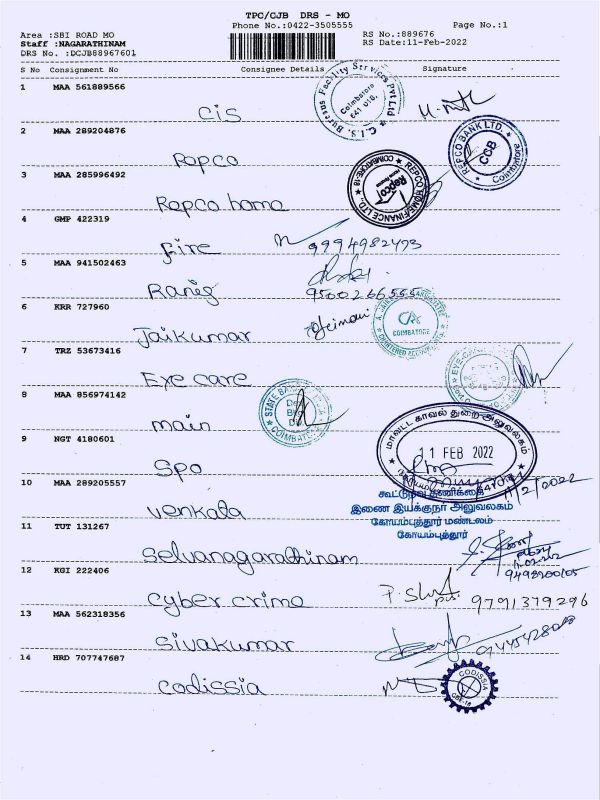 TPC/CJB DRS - MO
Phone No.:0422-3505555
Page No.:1
Area :SBI ROAD MO
RS No.:889676
Staff :NAGARATHINAM
RS Date:11-Feb-2022
DRS No. :DCJB88967601
S No Consignment No Consignee Details Signature
1 MAA 561889566
C.I.S. Bureaus Facility Services Pvt Ltd
Coimbatore
641 018.
Cis
2 MAA 289204876
REPCO BANK LTD.
CCB
Coimbatore
Repco
3 MAA 285996492
REPCO HOME FINANCE LTD.
COIMBATORE-18
Repco
Repco home
4 GMP 422319
Fire 9994982473
5 MAA 941502463
Ranig 9500266555
6 KRR 727960
CA
COIMBATORE
CHARTERED ACCOUNTANTS
Jaikumar
7 TRZ 53673416
Eye care
8 MAA 856974142
STATE BANK
COIMBATORE
main
9 NGT 4180601
மாவட்ட காவல் துறை அலுவலகம்
11 FEB 2022
Spo
10 MAA 289205557
கூட்டுறவு தணிக்கை
இணை இயக்குநர் அலுவலகம்
கோயம்புத்தூர் மண்டலம்
கோயம்புத்தூர்
Venkata
11 TUT 131267
Selvanagarathinam
12 KGI 222406
Cyber crime 9791379296
13 MAA 562318356
Sivakumar
14 HRD 707747687
CODISSIA
CBE-18
Codissia